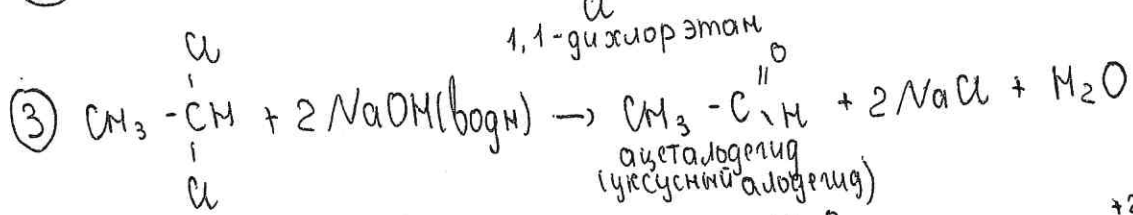 Cl
1,1-дихлорэтан
Cl
O
③ CH₃ - CH + 2 NaOH(водн) → CH₃ - C \ H + 2 NaCl + H₂O
Cl
ацетальдегид
(уксусный альдегид)
+2